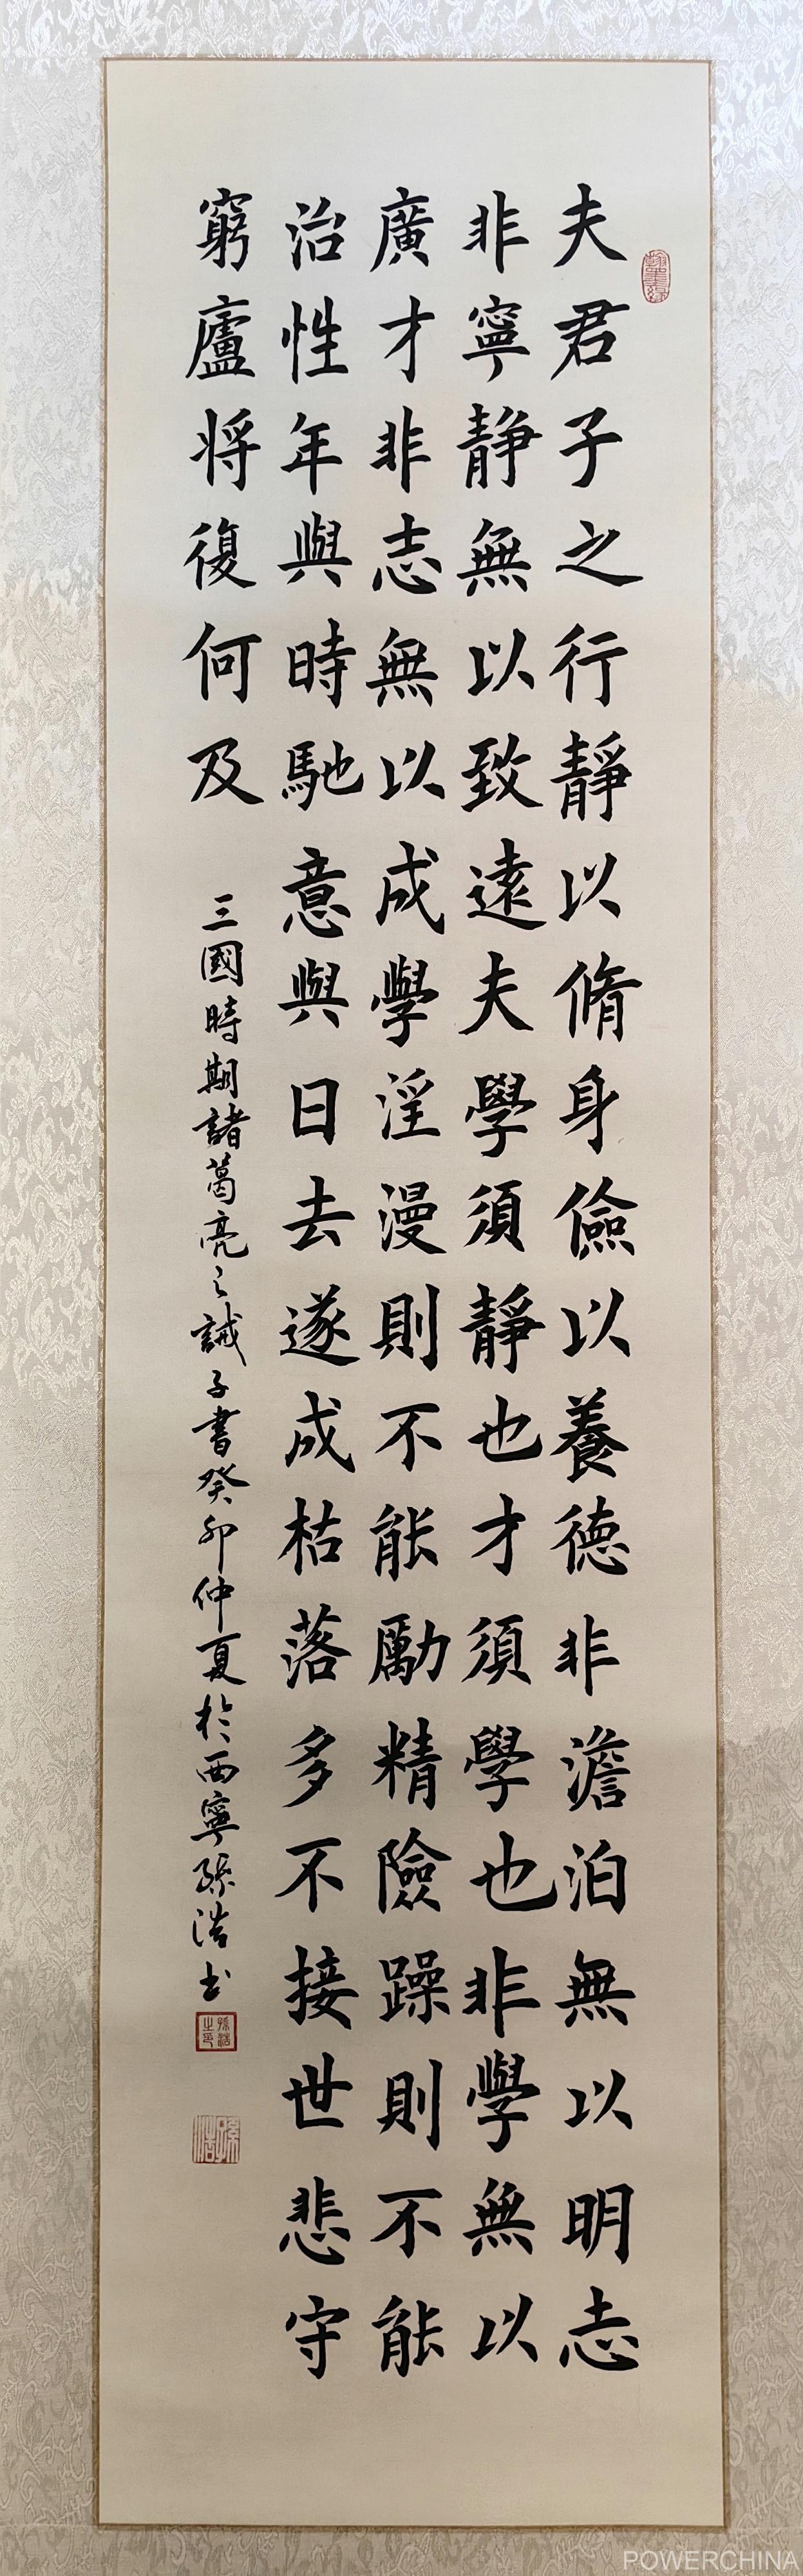 夫君子之行靜以脩身儉以養德非澹泊無以明志
非寧靜無以致遠夫學須靜也才須學也非學無以
廣才非志無以成學淫漫則不能勵精險躁則不能
治性年與時馳意與日去遂成枯落多不接世悲守
窮廬将復何及
三國時期諸葛亮之誡子書癸卯仲夏於西寧孫浩书
孫浩之印
孫浩
POWERCHINA